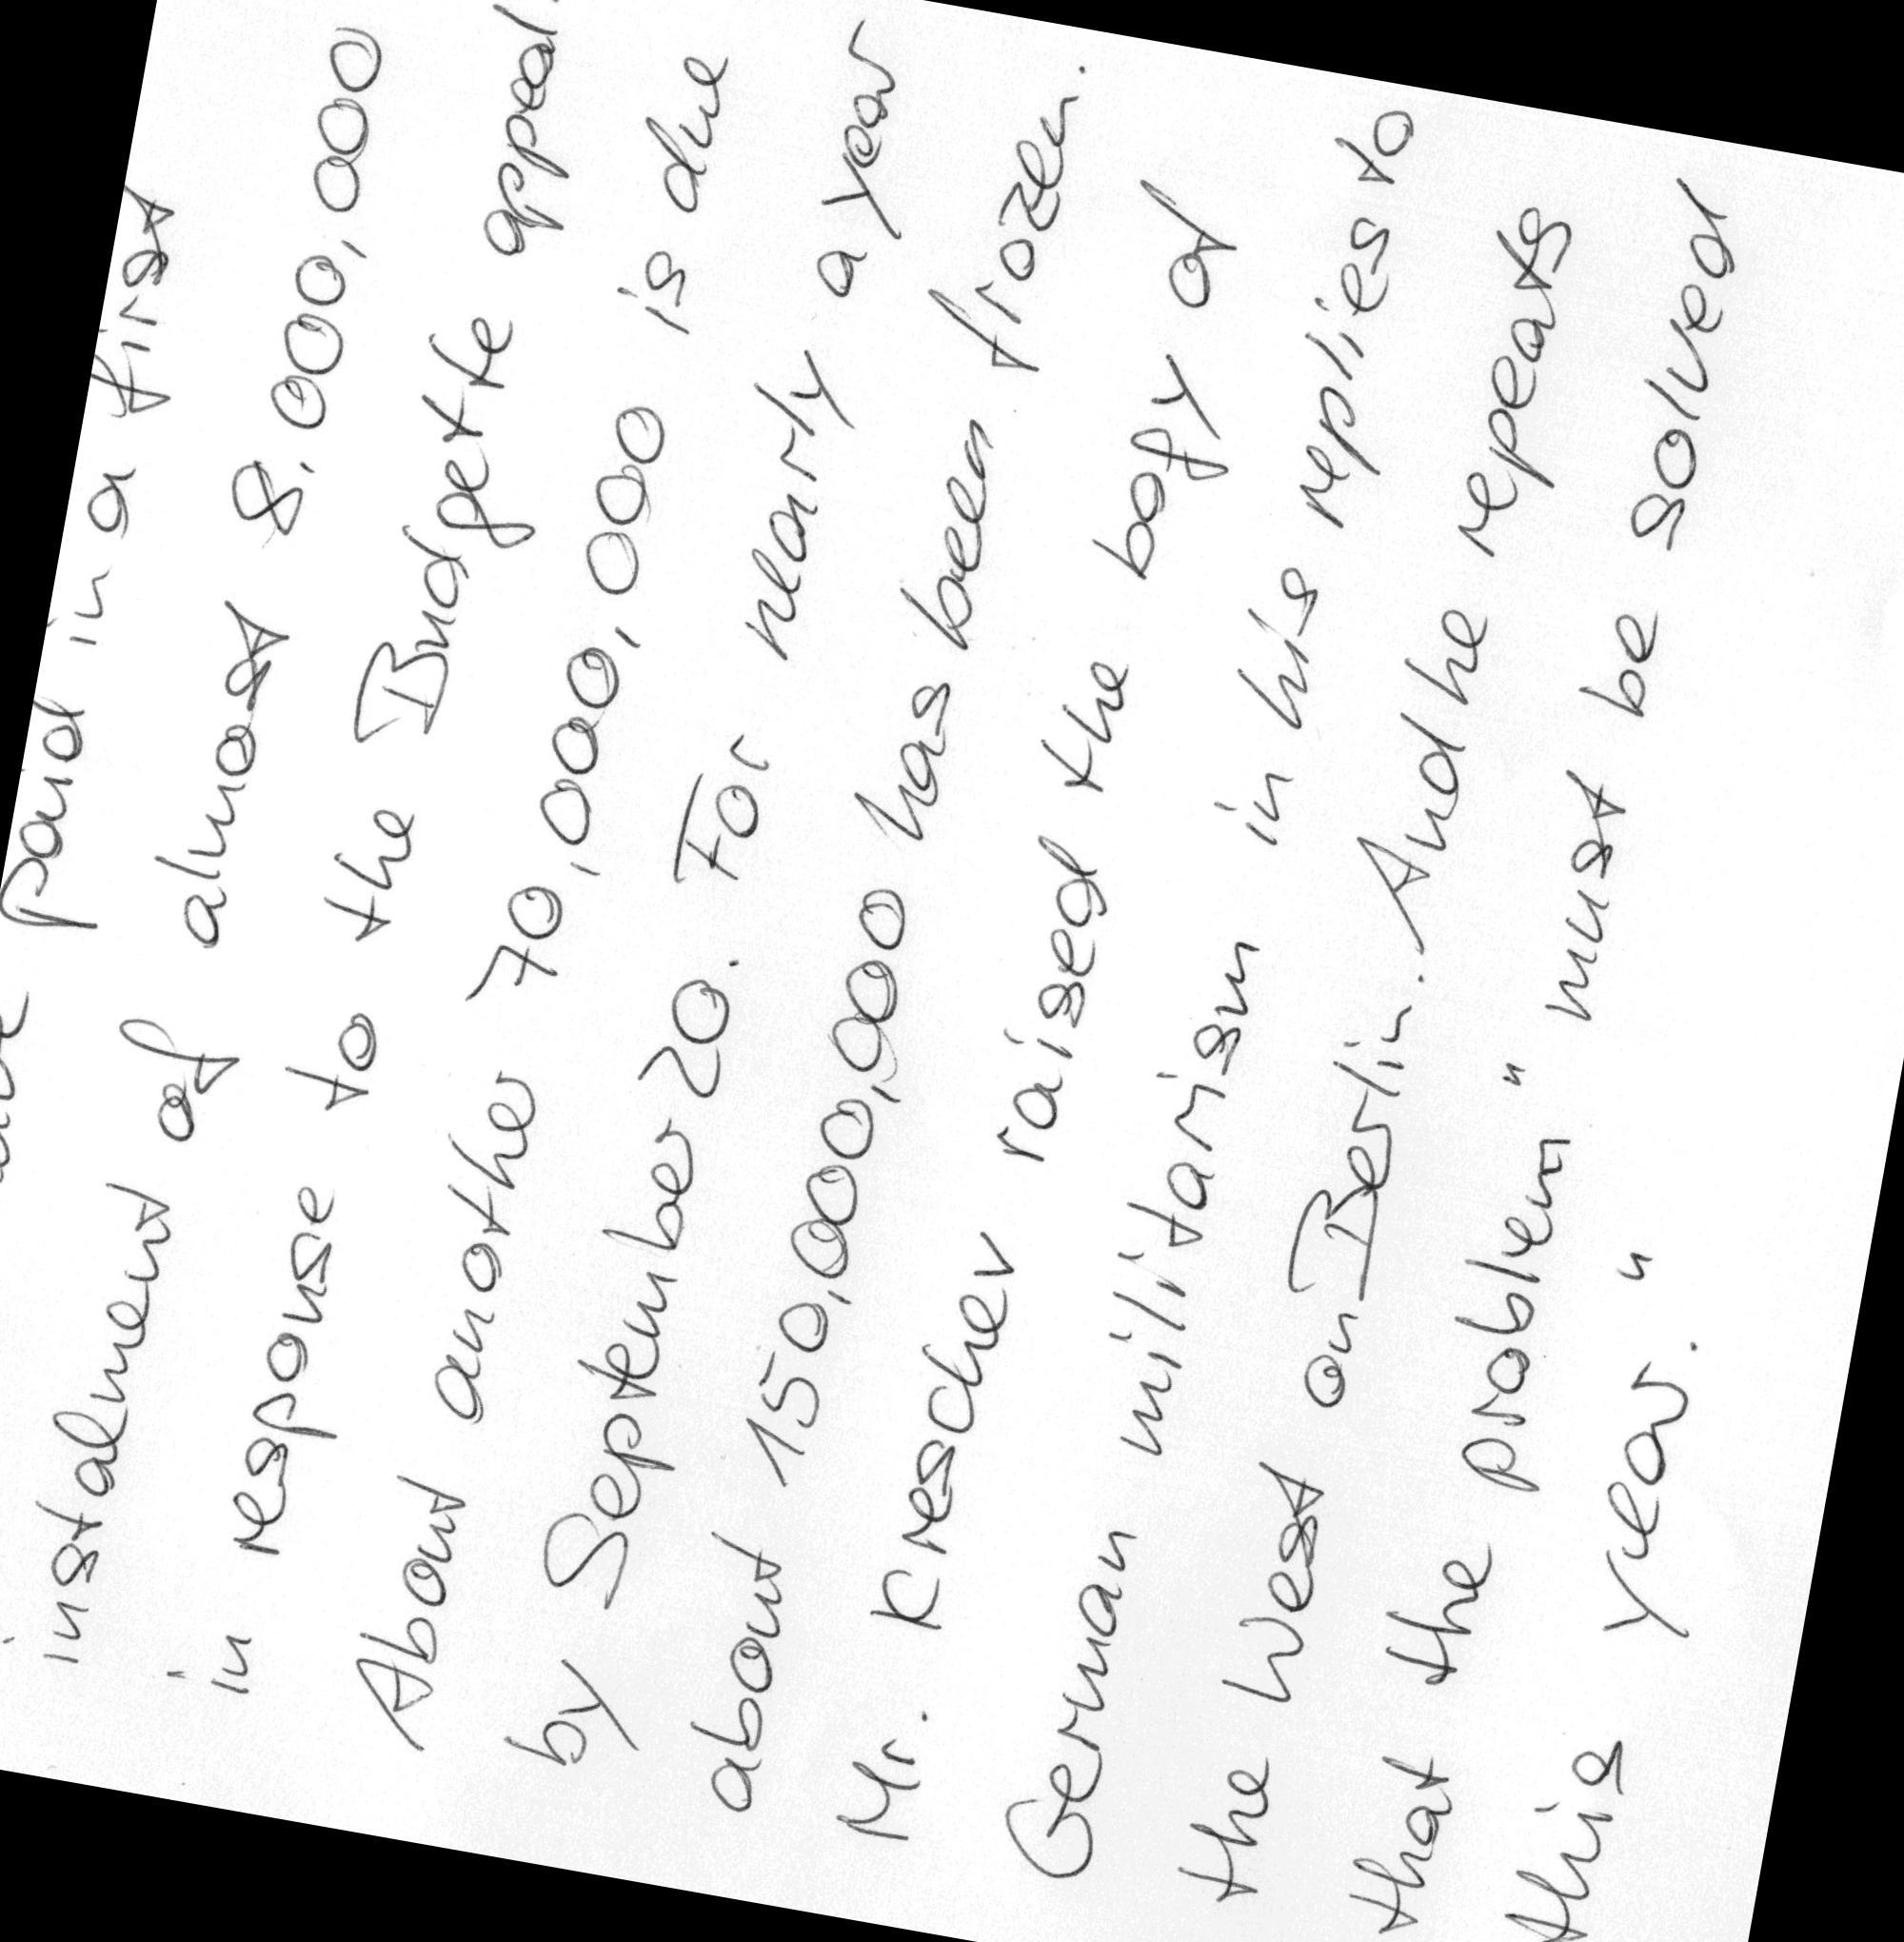 paid in a first
instalment of almost 8,000,000
in response to the Budgette appeal.
About another 70,000,000 is due
by September 20. For nearly a year
about 150,000,000 has been frozen.
Mr. Kreschev raised the bogy of
German militarism in his replies to
the West on Berlin. And he repeats
that the problem " must be solved
this year. "